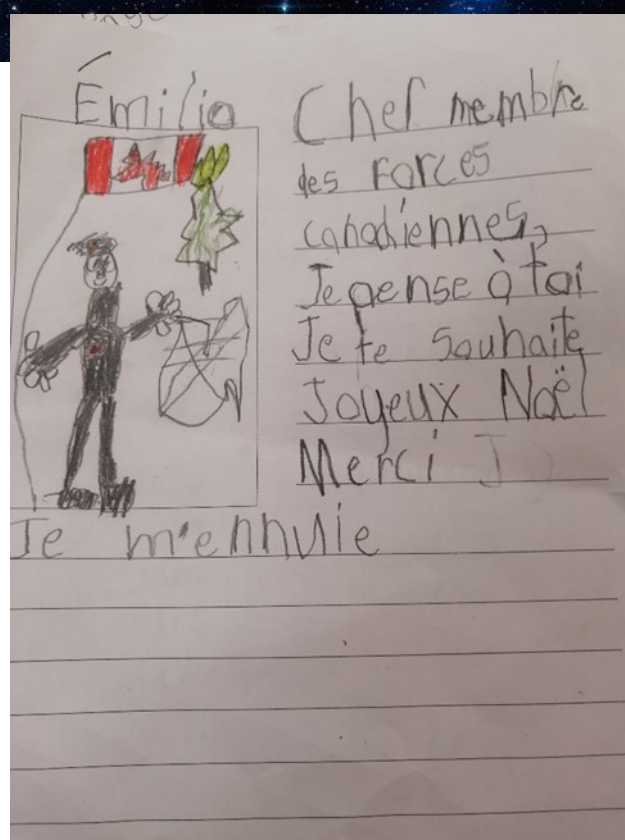 Émilio
Chef membre
des Forces
canadiennes,
Je pense à toi
Je te souhaite
Joyeux Noël
Merci
Je m'ennuie